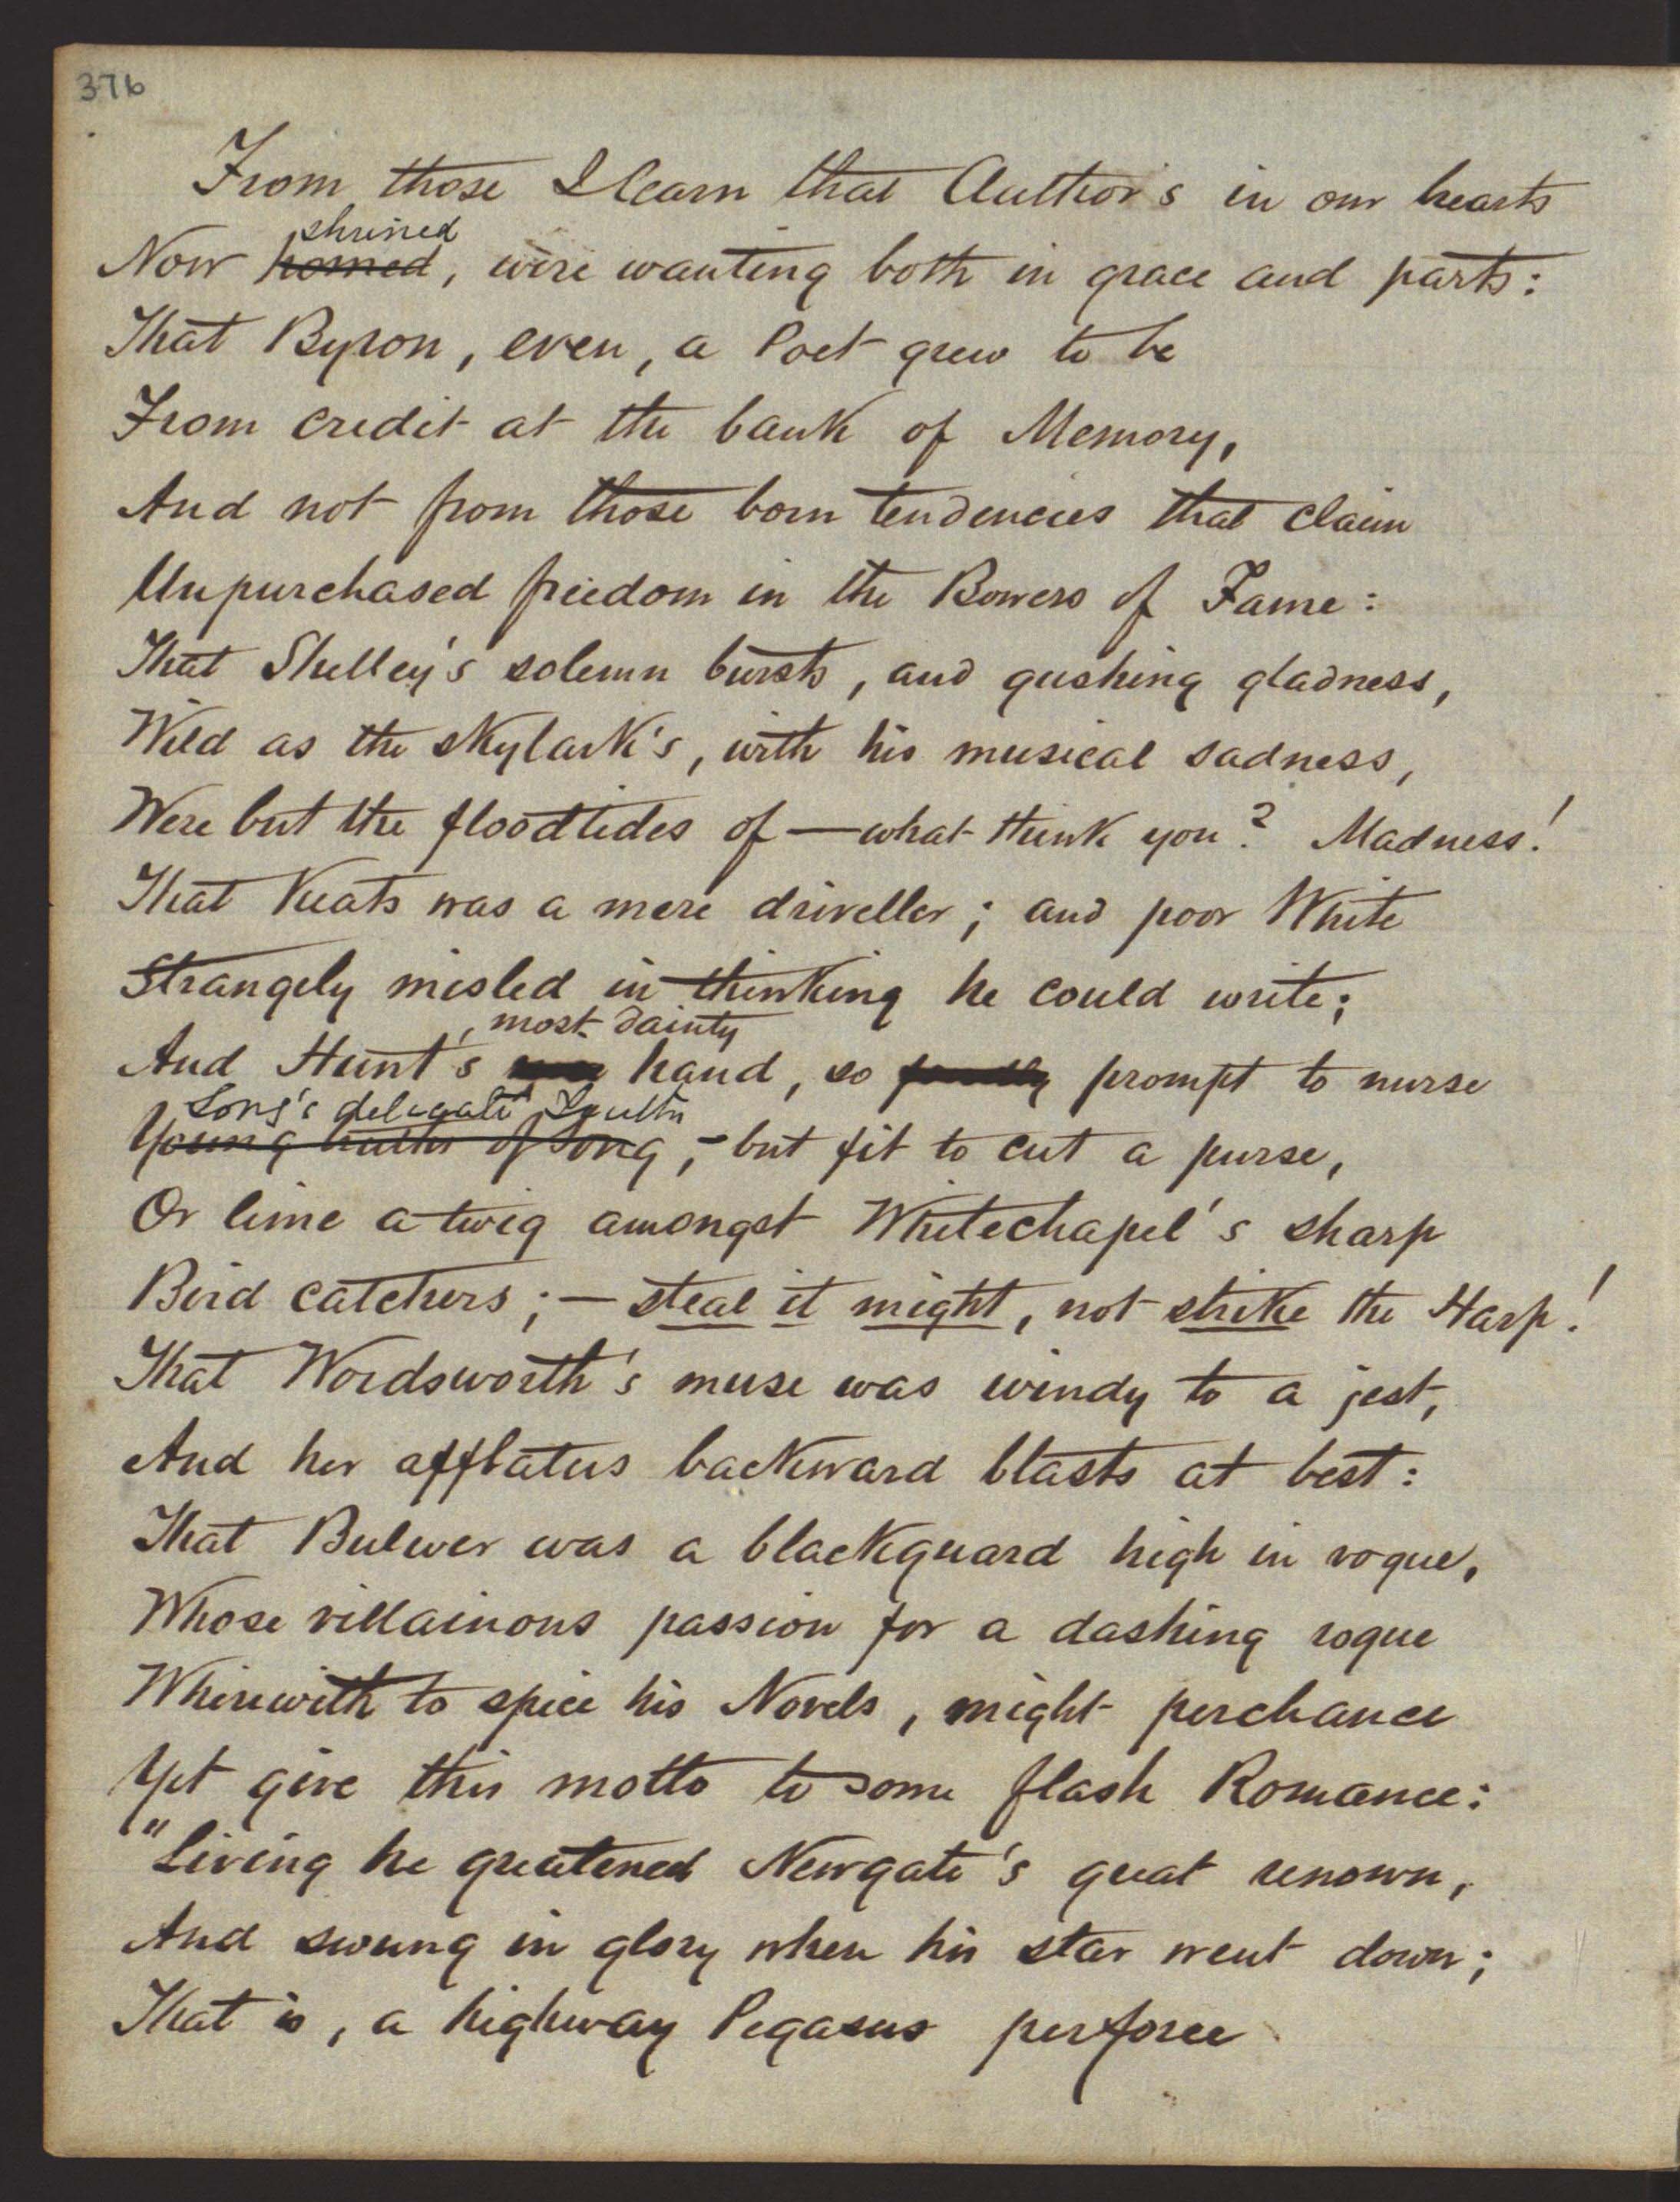 376
From those I learn that Author's in our hearts
shrined
Now homed, were wanting both in grace and parts:
That Byron, even, a Poet grew to be
From credit at the bank of Memory,
And not from those born tendencies that claim
Unpurchased freedom in the Bowers of Fame:
That Shelley's solemn bursts, and gushing gladness,
Wild as the skylark's, with his musical sadness,
Were but the floodtides of — what think you? Madness!
That Keats was a mere driveller; and poor White
Strangely misled in thinking he could write;
, most dainty
And Hunt's hand, so fondly prompt to nurse
Song's delicate Youth
Young of Song, – but fit to cut a purse,
Or lime a twig amongst Whitechapel's sharp
Bird catchers; — steal it might, not strike the Harp!
That Wordsworth's muse was windy to a jest,
And her afflatus backward blasts at best:
That Bulwer was a blackguard high in vogue,
Whose villainous passion for a dashing rogue
Wherewith to spice his Novels, might perchance
Yet give this motto to some flash Romance:
"Living he greatened Newgate's great renown,
And swung in glory when his star went down;
That is, a highway Pegasus perforce